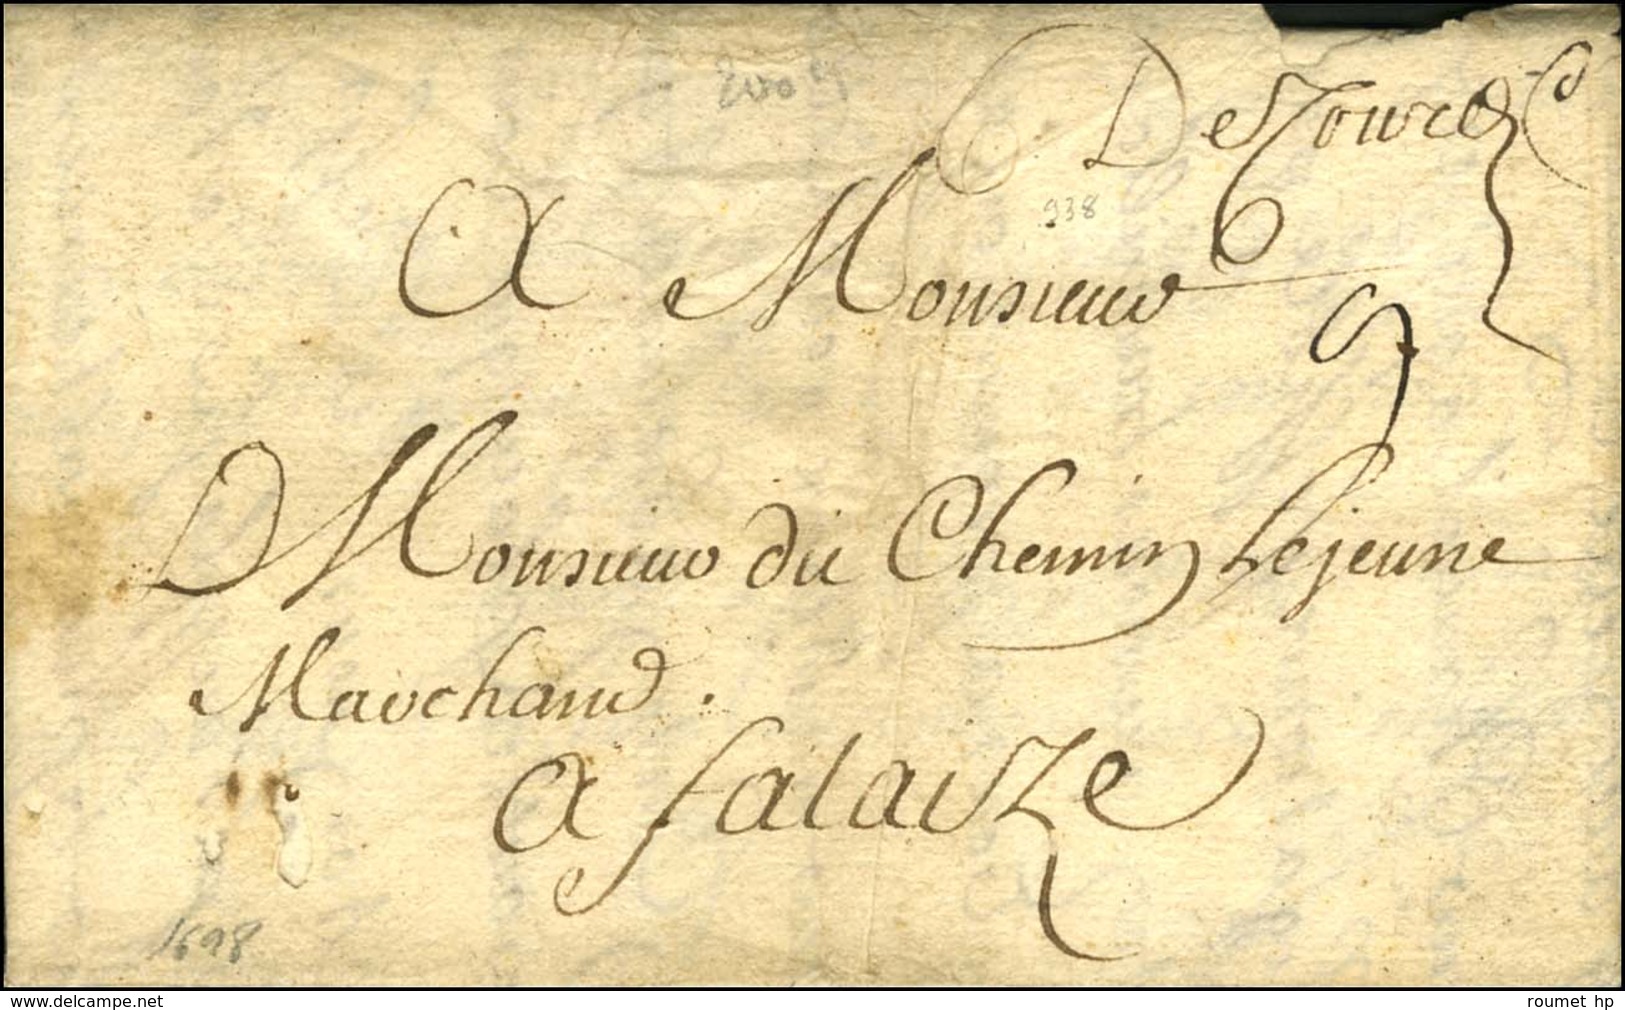 De Tours
A Monsieur
938
9
Monsieur du Chemin Lejeune
Marchand .
a falaize
1698
www.delcampe.net
roumet hp